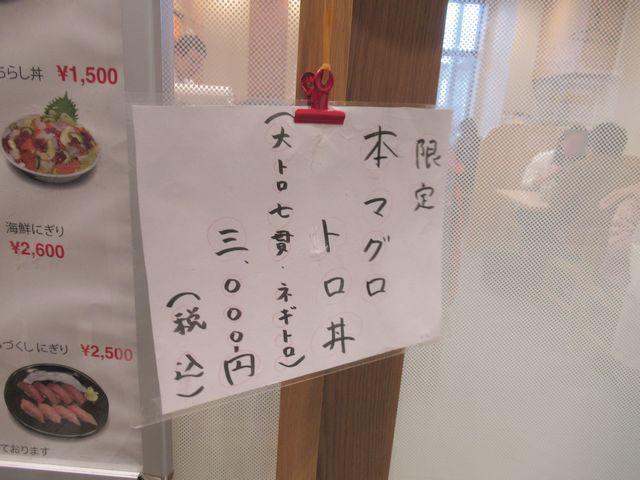 限定
本マグロ
トロ丼
(大トロ七貫・ネギトロ)
三、000円
(税込)
らし丼 ¥1,500
海鮮にぎり
¥2,600
づくしにぎり ¥2,500
ております